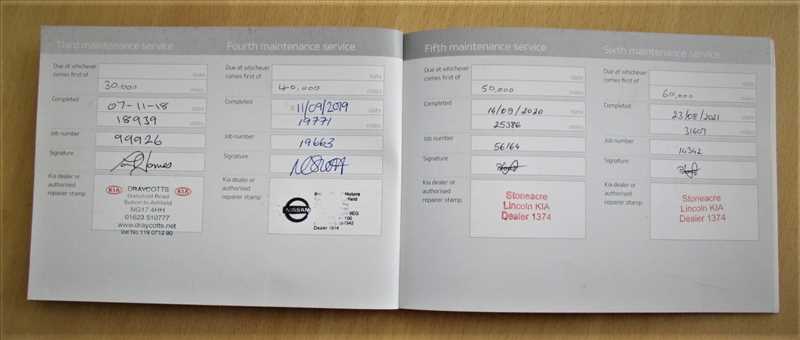 Third maintenance service
Due at whichever
comes first of
Date
30,000
miles
Completed
07-11-18
Date
18939
miles
Job number
99926
Signature
Kia dealer or
authorised
repairer stamp
KIA DRAYCOTTS KIA
Stoneyford Road
Sutton In Ashfield
NG17 4HH
01623 510777
www.draycotts.net
Fourth maintenance service
Due at whichever
comes first of
Date
40,000
miles
Completed
11/09/2019
Date
19771
miles
Job number
19663
Signature
Kia dealer or
authorised
repairer stamp
NISSAN
Motors
field
Fifth maintenance service
Due at whichever
comes first of
Date
50,000
miles
Completed
14/09/2020
Date
25386
miles
Job number
56164
Signature
Kia dealer or
authorised
repairer stamp
Stoneacre
Lincoln KIA
Dealer 1374
Sixth maintenance service
Due at whichever
comes first of
Date
60,000
miles
Completed
23/08/2021
Date
31607
miles
Job number
10342
Signature
Kia dealer or
authorised
repairer stamp
Stoneacre
Lincoln KIA
Dealer 1374